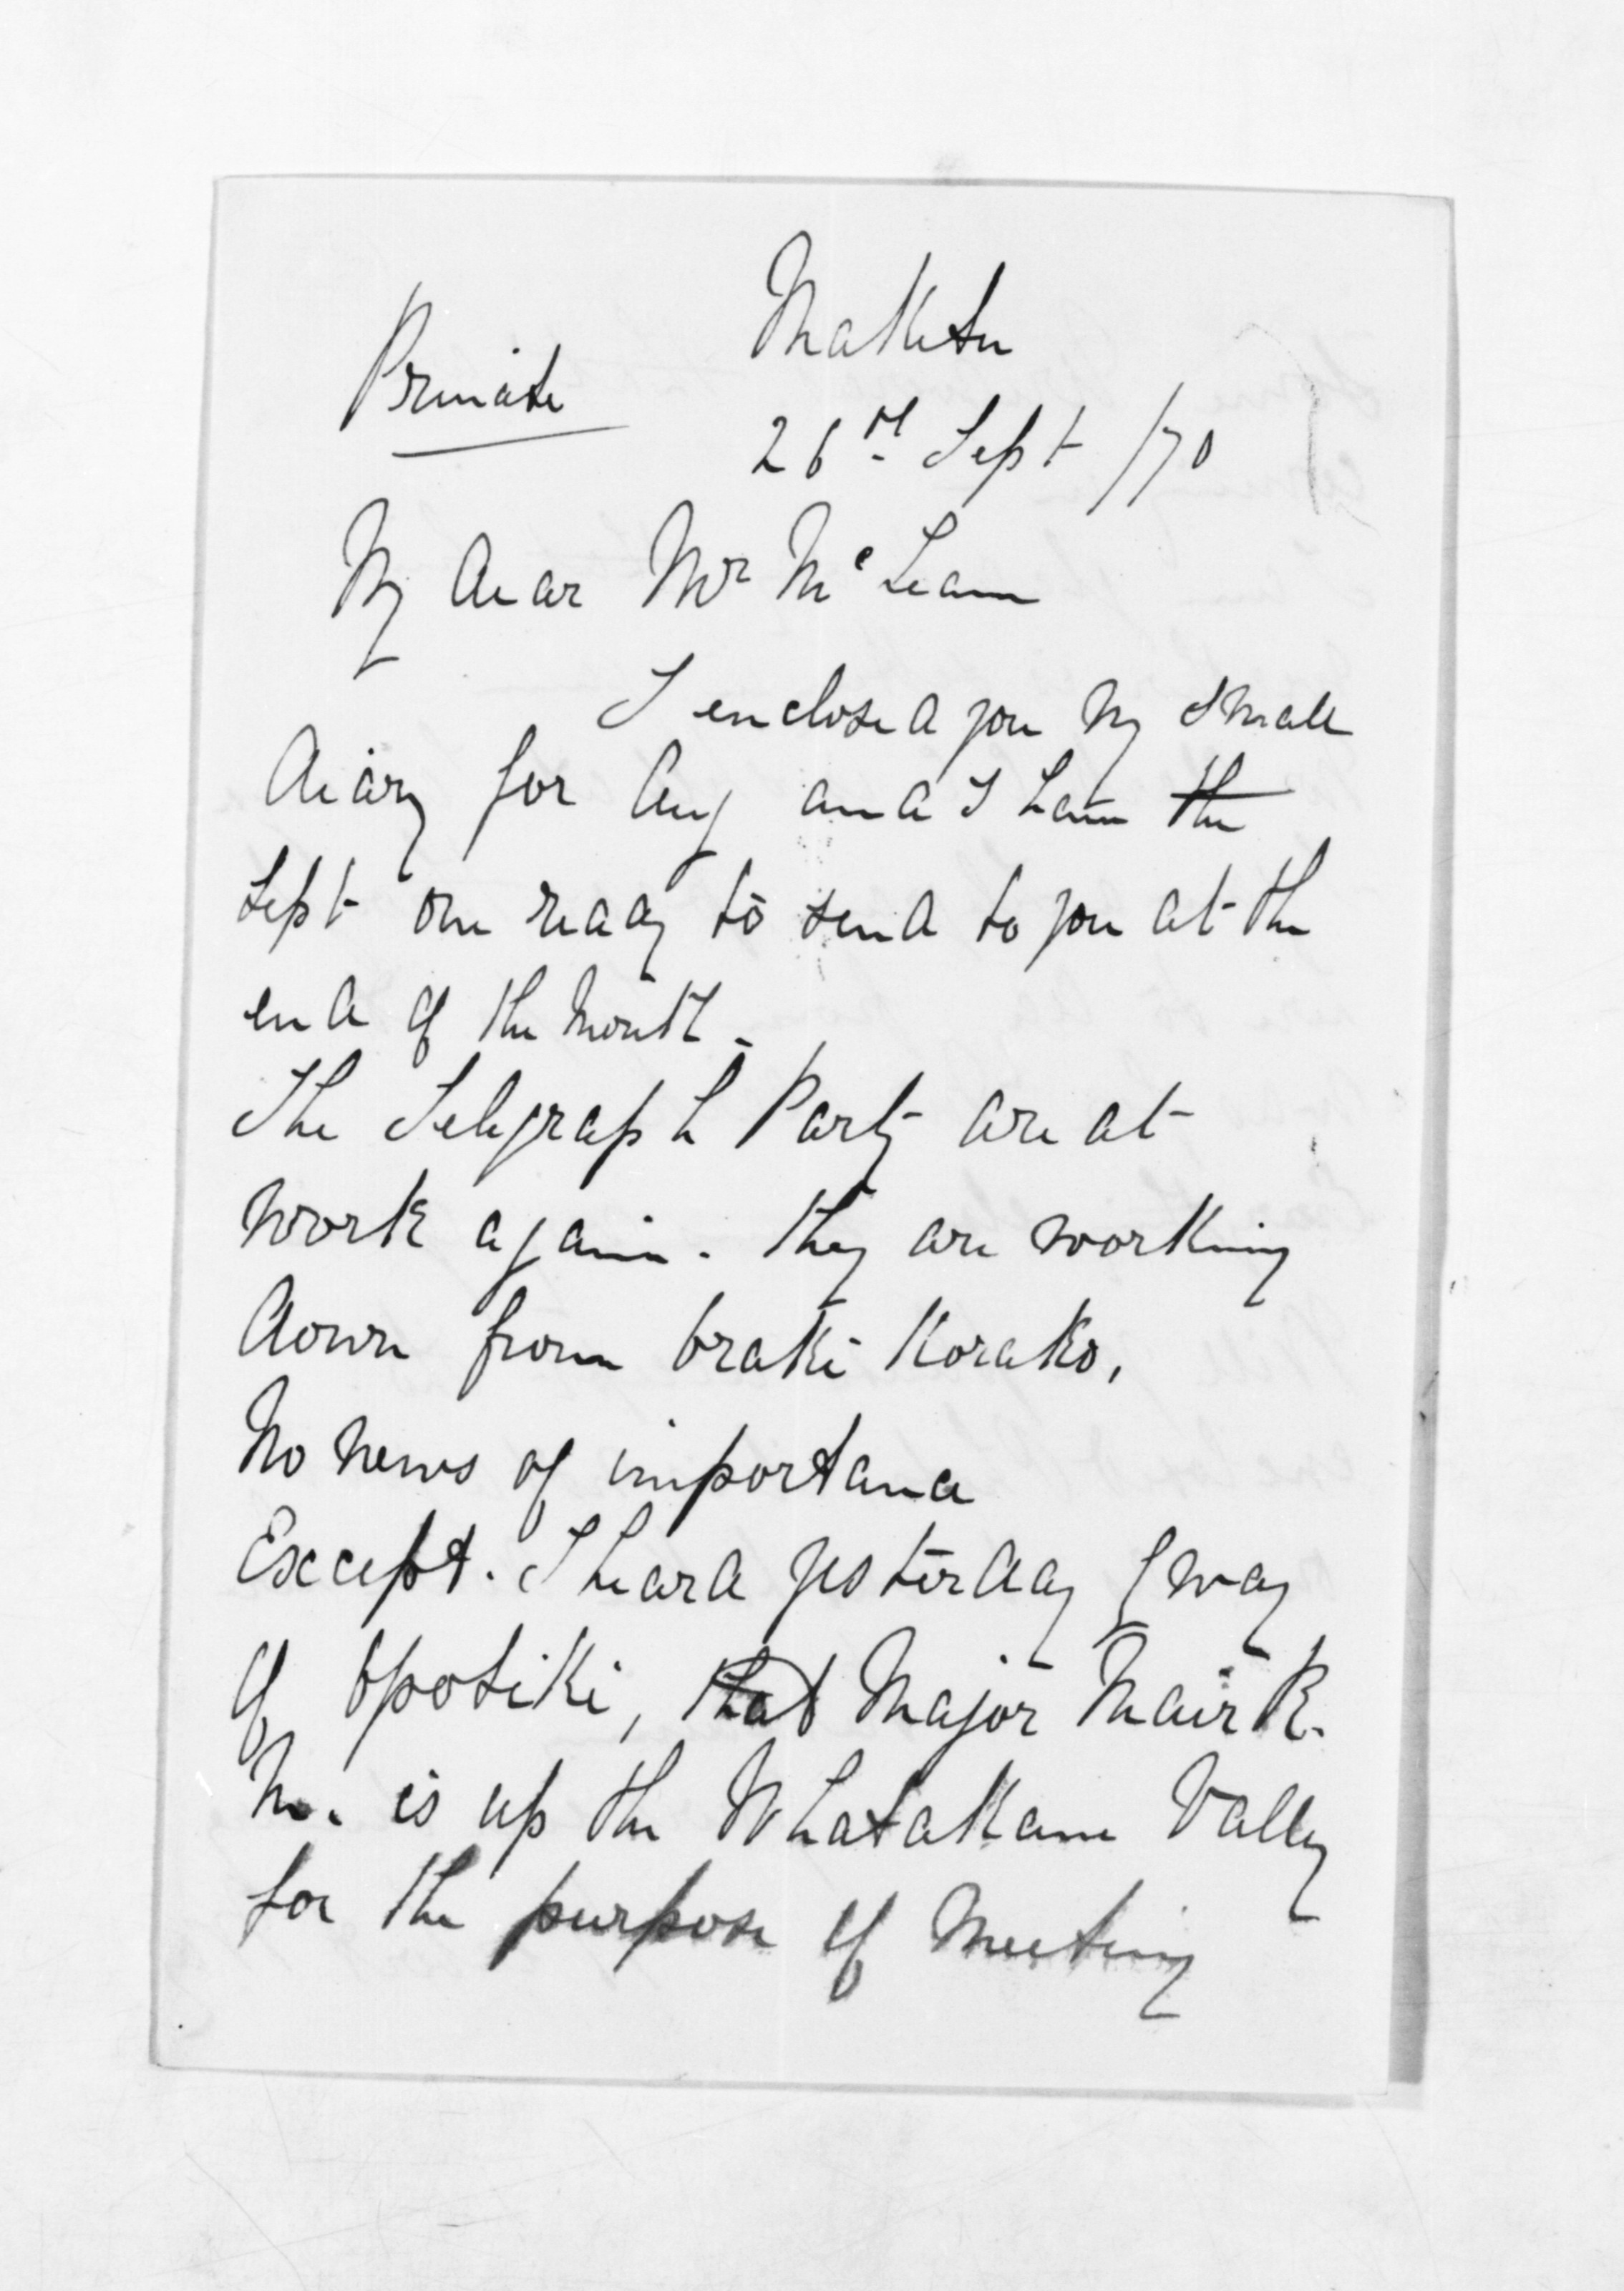 Maketu
Private
26th Sept /70
My dear Mr McLean
I enclosed you my small
diary for Aug and I have the
Sept one ready to send to you at the
end of the month.
The Telegraph Party are at
work again. they are working
down from Oraki Korako,
No news of importance
Except. I heard yesterday by way
of Opotiki, that Major Mair R.
M. is up the Whatakane Vally
for the purpose of meeting